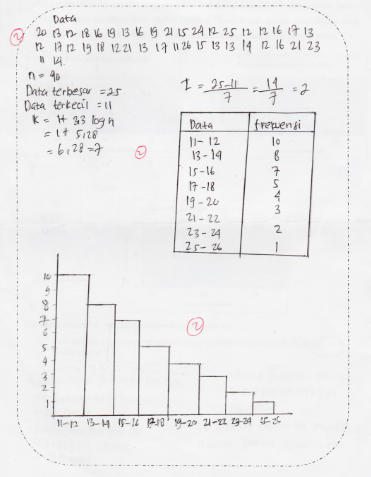 Data
2 20 13 12 18 16 19 13 16 19 21 15 24 12 25 12 12 16 17 13
12 17 12 19 18 12 21 13 17 11 26 15 13 13 14 12 16 21 23
11 14.
n = 40
Data terbesar = 25
Data terkecil = 11
K = 1 + 3,3 log n
= 1 + 5,28
= 6,28 = 7
2
I = 25-11 / 7 = 14 / 7 = 2
Data frekuensi
11-12 10
13-14 8
15-16 7
17-18 5
19-20 4
21-22 3
23-24 2
25-26 1
2
10
9
8
7
6
5
4
3
2
1
11-12 13-14 15-16 17-18 19-20 21-22 23-24 25-26